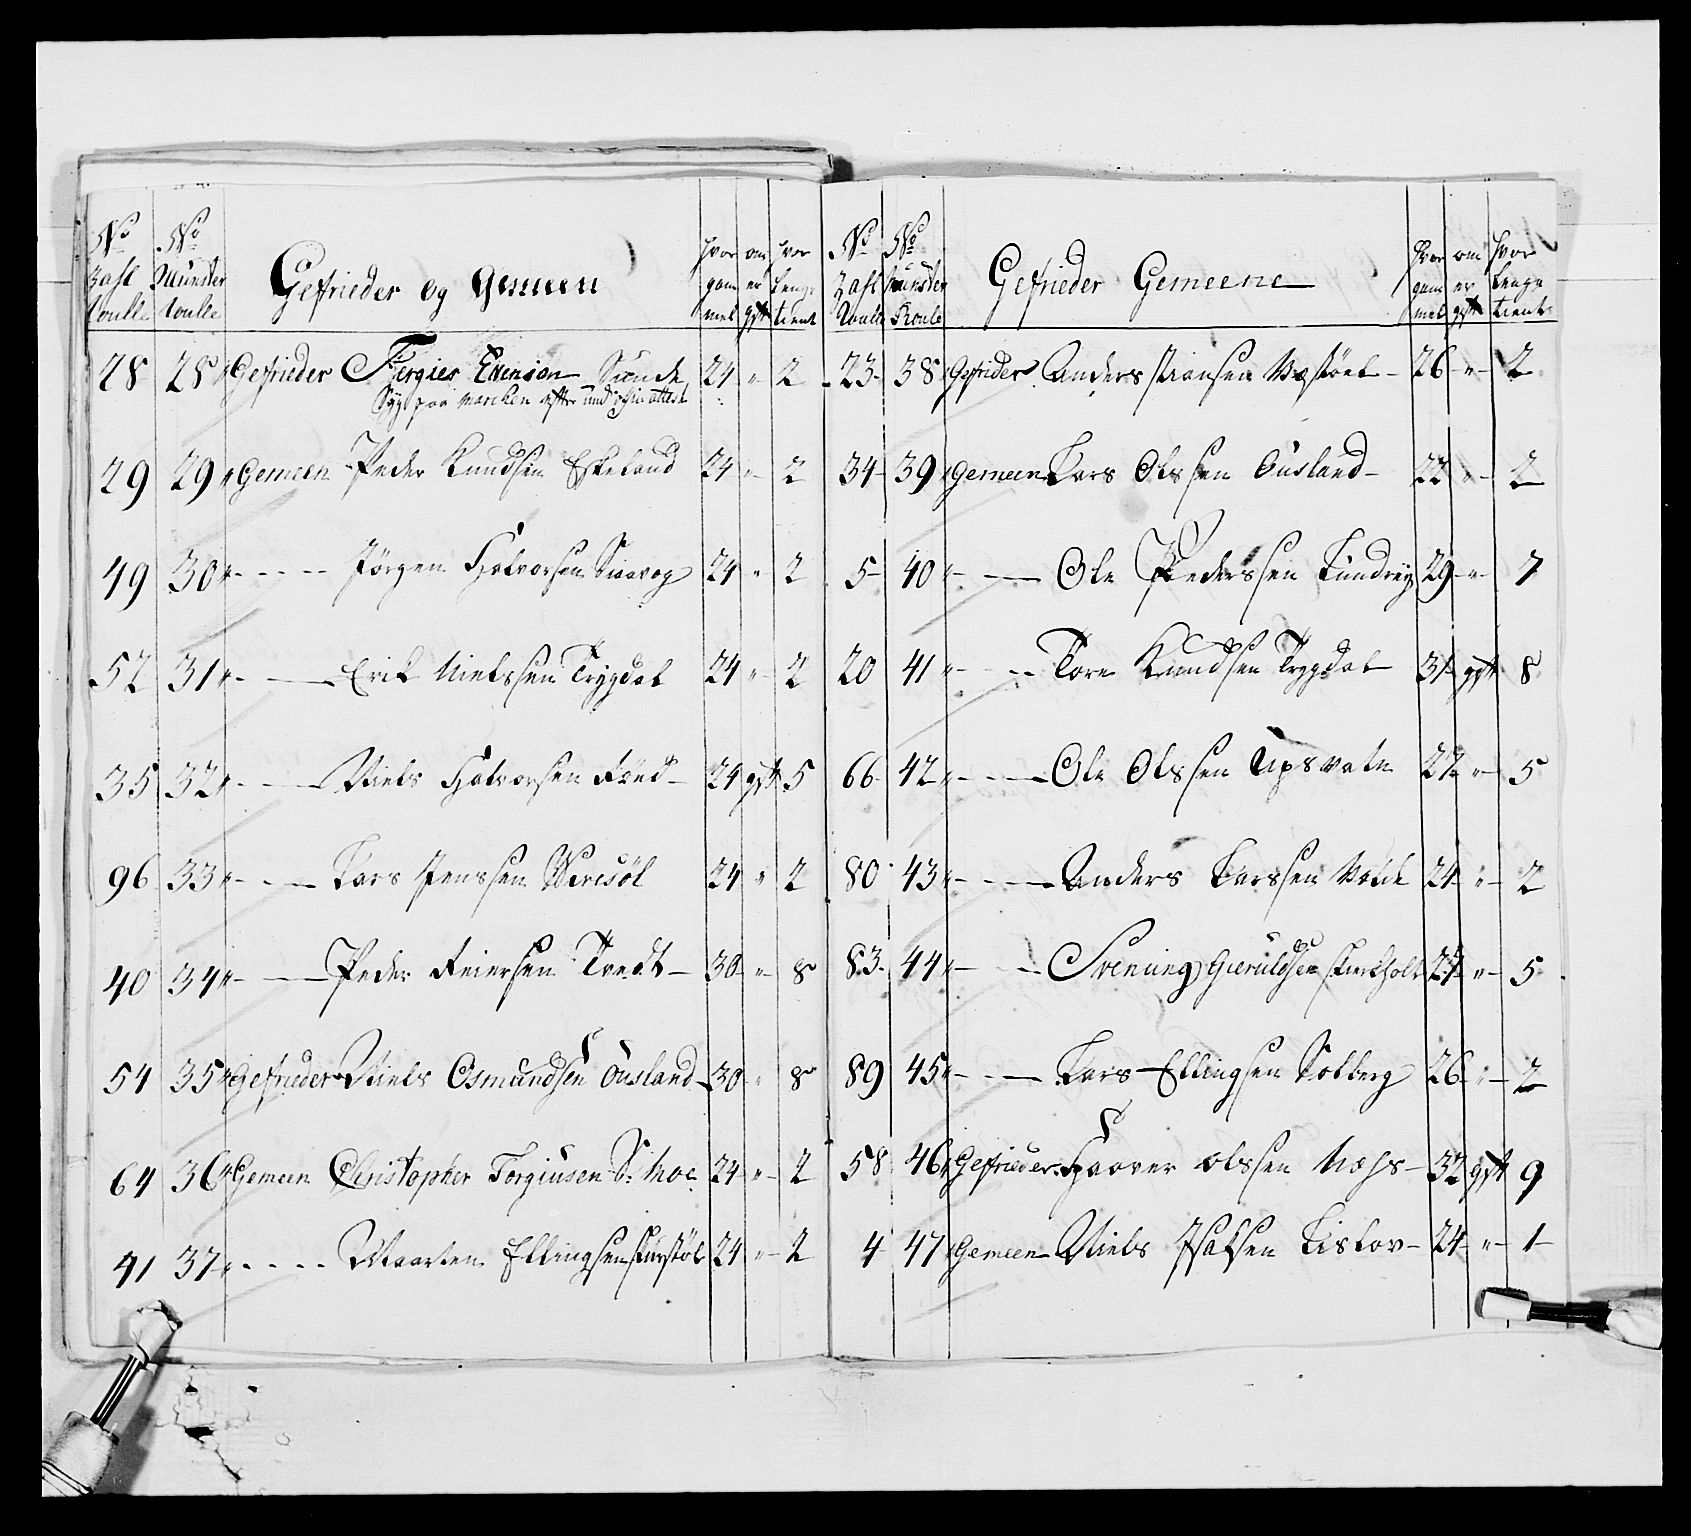 No Zahl Roulle | No Munster Roulle | Gefrieder og Gemeen | hvor gam mel | om er gift | hvor lenge tient
28 28 Gefrieder Tergies Evensøn Sunde 24 " 2
Syg paa Marchen efter attest
29 29 Gemeen Peder Knudsen Eskeland 24 " 2
49 30 " Jörgen Halvorsen 24 " 2
52 31 " Erik Nielssen Trygdal 24 " 2
35 32 " Niels Halvorsen 24 gift 5
96 33 " Lars Jenssen 24 " 2
40 34 " Peder Reiersen Tredt 30 " 8
54 35 Gefrieder Niels Osmundsen Ousland 30 " 8
64 36 Gemeen Christopher Torgiusen 24 " 2
41 37 " Maarten Ellingsen 24 " 2
No Zahl Roulle | No Munster Roule | Gefrieder Gemeene | hvor gam mel | om er gift | hvor lenge tient
23 38 Gefrider Anders 26 " 2
34 39 Gemeen Lars Olssen Ousland 22 " 2
5 40 " Ole Pederssen 29 " 7
20 41 " Tore Knudsen Trygdal 31 gift 8
66 42 " Ole Olssen Upsvaln 27 " 5
80 43 " Anders Larssen 24 " 2
83 44 " Svening Gieruldsen 27 " 5
89 45 " Lars Ellingsen Solberg 26 " 2
58 46 Gefrieder Haaver Olssen 32 gift 9
4 47 Gemeen Niels 24 " 1